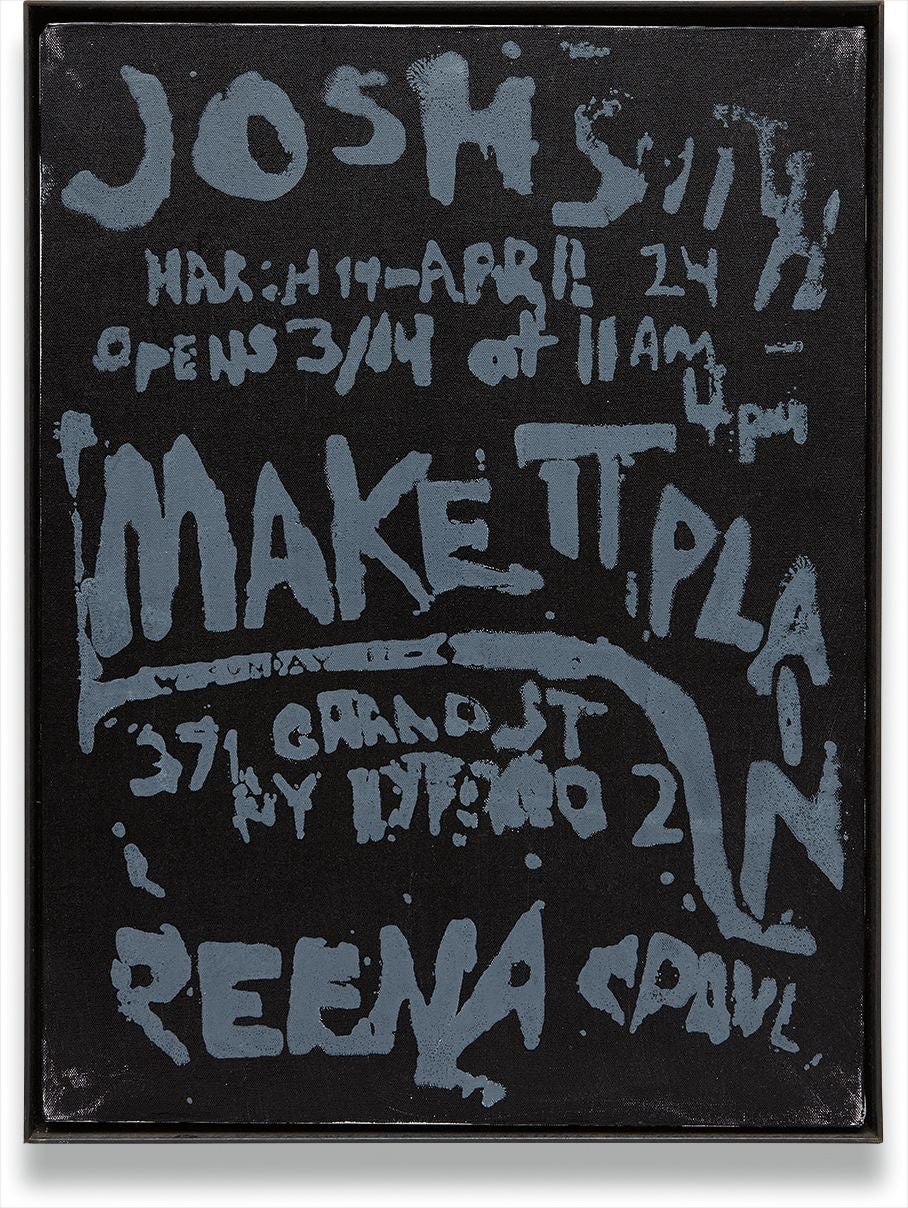 JOSH SMITH
MARCH 14-APRIL 24
OPENS 3/14 at 11 AM
- 4 PM
MAKE IT PLAIN
SUNDAY
371 GRAND ST
NY NY 2
REENA SPAUL